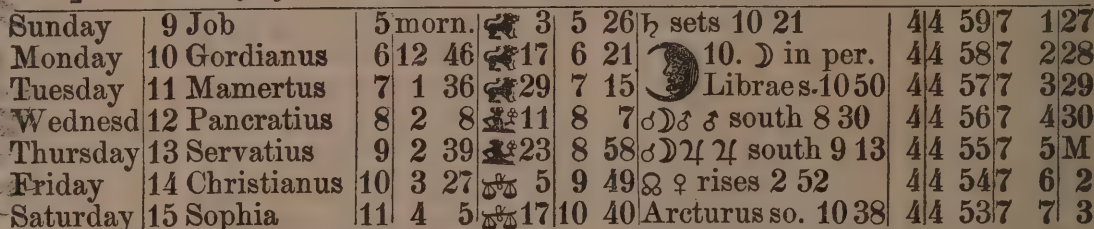 Sunday 9 Job 5 morn. 3 5 26 ♄ sets 10 21 4 4 59 7 1 27
Monday 10 Gordianus 6 12 46 17 6 21 10. ☽ in per. 4 4 58 7 2 28
Tuesday 11 Mamertus 7 1 36 29 7 15 Librae s. 10 50 4 4 57 7 3 29
Wednesd 12 Pancratius 8 2 8 11 8 7 ☌☽♂ ♂ south 8 30 4 4 56 7 4 30
Thursday 13 Servatius 9 2 39 23 8 58 ☌☽♃ ♃ south 9 13 4 4 55 7 5 M
Friday 14 Christianus 10 3 27 ♎ 5 9 49 ☊ ♀ rises 2 52 4 4 54 7 6 2
Saturday 15 Sophia 11 4 5 ♎ 17 10 40 Arcturus so. 10 38 4 4 53 7 7 3